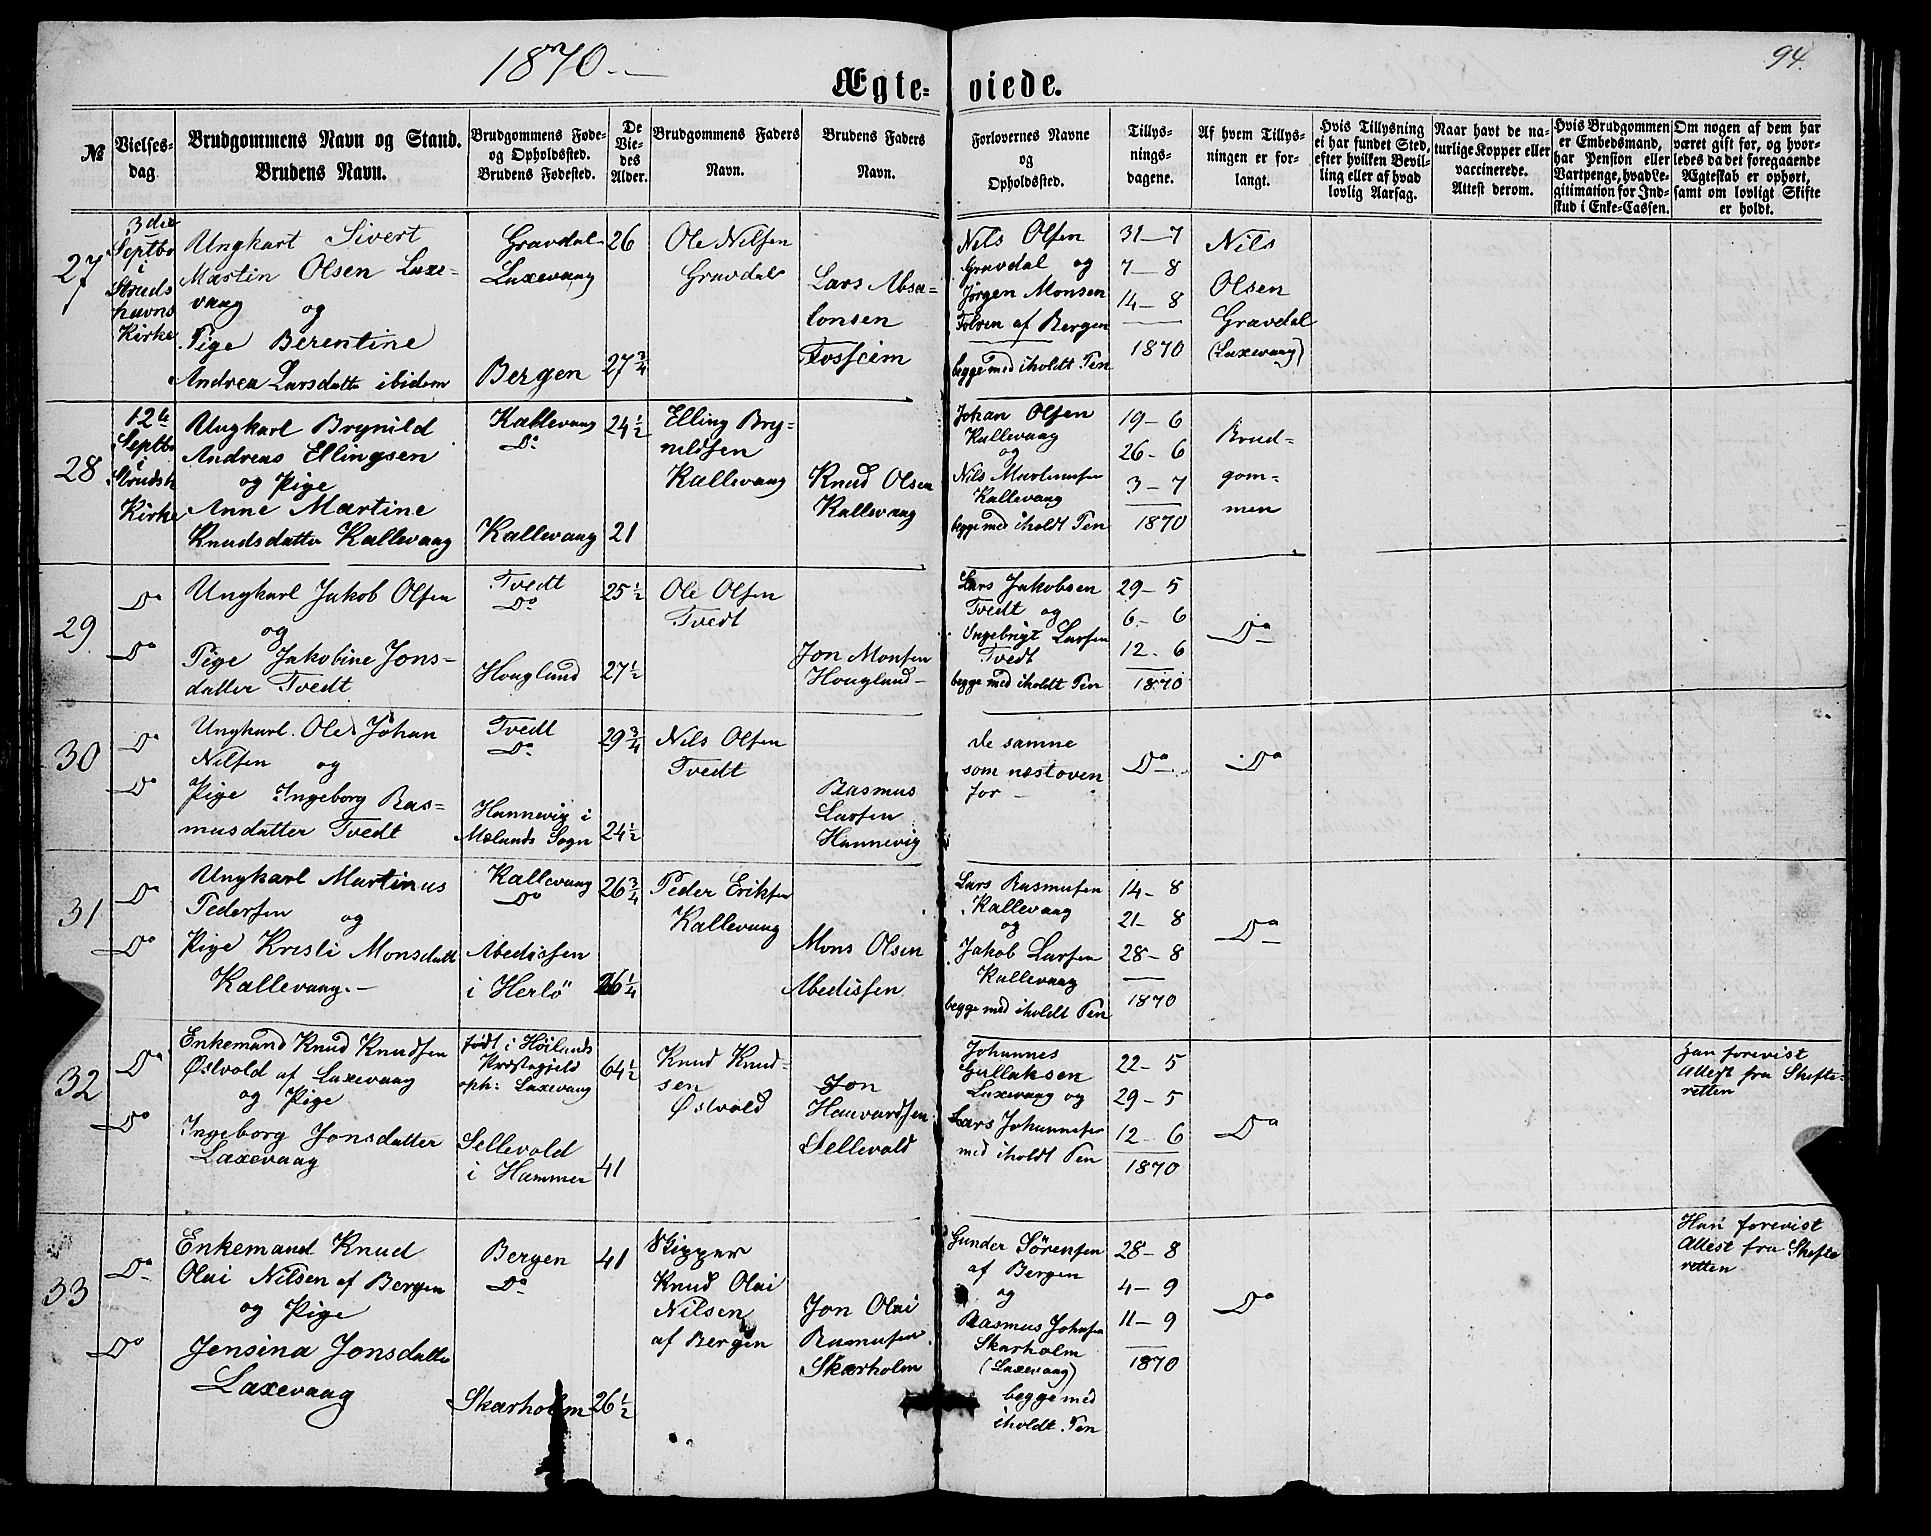 1870.
94.
Ægte=viede.
№
Vielses-
dag
Brudgommens Navn og Stand.
Brudens Navn.
Brudgommens Føde-
og Opholdssted.
Brudens Fødested.
De
Vie-
des
Alder.
Brudgommens Faders
Navn.
Brudens Faders
Navn.
Forlovernes Navne
og
Opholdssted.
Tillys-
nings-
dagene.
Af hvem Tillys-
ningen er for-
langt.
Hvis Tillysning
ei har fundet Sted,
efter hvilken Bevil-
ling eller af hvad
lovlig Aarsag.
Naar havt de na-
turlige Kopper eller
vaccinerede.
Attest derom.
Hvis Brudgommen
er Embedsmand,
har Pension eller
Vartpenge, hvad Le-
gitimation for Ind-
skud i Enke-Cassen.
Om nogen af dem har
været gift før, og hvor-
ledes da det foregaaende
Ægteskab er ophørt,
samt om lovligt Skifte
er holdt.
27
3die
Septbr
i
Struds
havns
Kirke
Ungkarl Sivert
Martin Olsen Laxe-
vaag og
Pige Berentine
Andrea Larsdatter ibidem
Gravdal
Laxevaag
Bergen
26
27 3/4
Ole Nilsen
Gravdal
Lars Absa-
lonsen
Nils Olsen
Gravdal og
Jørgen Monsen
af Bergen
begge med iholdt Pen
31-7
7-8
14-8
1870
Nils
Olsen
Gravdal
(Laxevaag)
28
12te
Septbr
i
Strudsh
Kirke
Ungkarl Brynild
Andreas Ellingsen
og Pige
Anne Martine
Knudsdatter Kallevaag
Kallevaag
Do
Kallevaag
24 1/2
21
Elling Bry-
nildsen
Kallevaag
Knud Olsen
Kallevaag
Johan Olsen
Kallevaag
og
Nils Martinusen
Kallevaag
begge med iholdt Pen
19-6
26-6
3-7
1870
Brud-
gom-
men
29.
Do
Do
Ungkarl Jakob Olsen
og
Pige Jakobine Jons-
datter Tvedt
Tvedt
Do
Hougland
25 1/2
27 1/2
Ole Olsen
Tvedt
Jon Monsen
Hougland
Lars Jakobsen
Tvedt og
Ingebrigt Larsen
Tvedt
begge med iholdt Pen
29-5
6-6
12-6
1870
Do
30
Do
Do
Ungkarl Ole Johan
Nilsen og
Pige Ingeborg Ras-
musdatter Tvedt
Tvedt
Do
Hannevig i
Mælands Sogn
29 3/4
24 1/2
Nils Olsen
Tvedt
Rasmus
Larsen
Hannevig
de samme
som næstoven
for
Do
Do
31
Do
Do
Ungkarl Martinus
Pedersen og
Pige Kristi Monsdatt
Kallevaag.
Kallevaag
Do
Abedissen
i Herlö
26 3/4
26 1/4
Peder Eriksen
Kallevaag
Mons Olsen
Abedissen
Lars Rasmusen
Kallevaag
og
Jakob Larsen
Kallevaag
begge med iholdt Pen
14-8
21-8
28-8
1870
Do
32
Do
Do
Enkemand Knud Knudsen
Østvold af Laxevaag
og Pige
Ingeborg Jonsdatter
Laxevaag
født i Høilands
Præstegjeld
oph: Laxevaag
Sellevold
i Hammer
64 1/2
41
Knud Knud-
sen
Østvold
Jon
Haavardsen
Sellevold
Johannes
Gullaksen
Laxevaag og
Lars Johannesen
med iholdt Pen
22-5
29-5
12-6
1870
Do
Han forevist
Attest fra Skifte-
retten
33
Do
Do
Enkemand Knud
Olai Nilsen af Bergen
og Pige
Jensina Jonsdatter
Laxevaag
Bergen
Do
Skarholm
41
26 1/2
Skipper
Knud Olai
Nilsen
af Bergen
Jon Olai
Rasmusen
Skarholm
Gunder Sörensen
af Bergen
og
Rasmus Johnsen
Skarholm
(Laxevaag)
begge med
iholdt Pen
28-8
4-9
11-9
1870
Do
Han forevist
Attest fra Skifte
retten